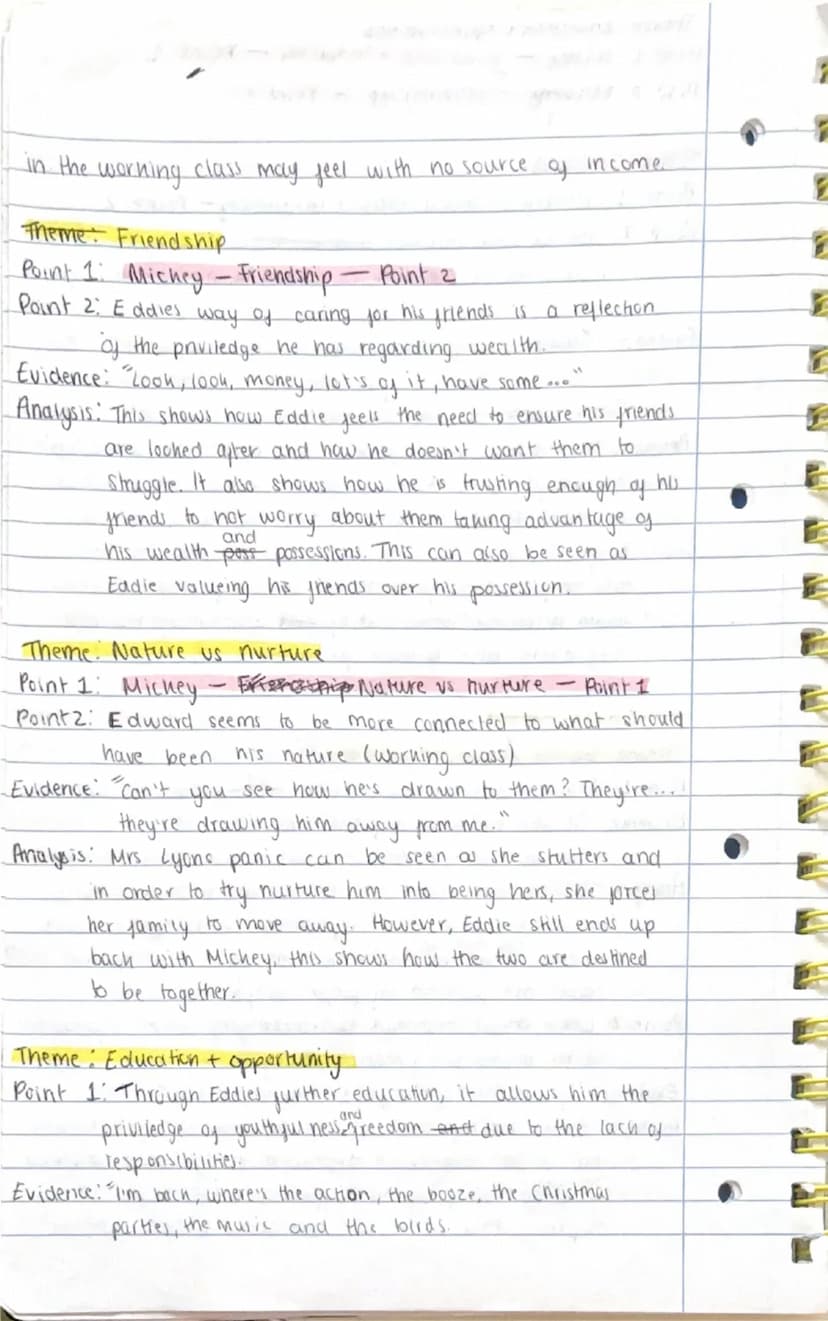 in the working class may feel with no source of income.
Theme: Friendship
Point 1: Mickey – Friendship – Point 2
Point 2: Eddies way of caring for his friends is a reflection
of the priviledge he has regarding wealth.
Evidence: "Look, look, money, lot's of it, have some..."
Analysis: This shows how Eddie feels the need to ensure his friends
are looked after and how he doesn't want them to
struggle. It also shows how he is trusting enough of his
friends to not worry about them taking advantage of
his wealth and possessions. This can also be seen as
Eddie valueing his friends over his possession.
Theme: Nature vs nurture
Point 1: Mickey – Nature vs nurture – Point 1
Point 2: Edward seems to be more connected to what should
have been his nature (working class)
Evidence: "Can't you see how he's drawn to them? They're...
they're drawing him away from me."
Analysis: Mrs Lyons panic can be seen as she stutters and
in order to try nurture him into being hers, she forces
her family to move away. However, Eddie still ends up
back with Mickey, this shows how the two are destined
to be together.
Theme: Education + opportunity
Point 1: Through Eddies further education, it allows him the
priviledge of youthfulness and freedom due to the lack of
responsibilities.
Evidence: "I'm back, where's the action, the booze, the Christmas
parties, the music and the birds.